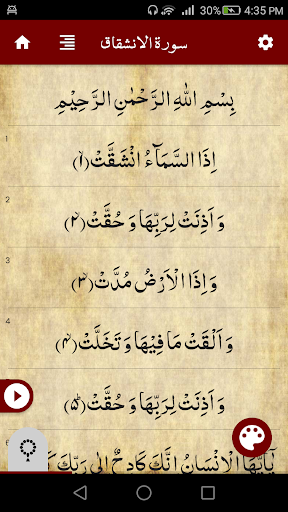 30% 4:35 PM
سورة الانشقاق
بِسْمِ اللّٰهِ الرَّحْمٰنِ الرَّحِيْمِ
1
اِذَا السَّمَآءُ انْشَقَّتْ ﴿۱﴾
2
وَ اَذِنَتْ لِرَبِّهَا وَ حُقَّتْ ﴿۲﴾
3
وَ اِذَا الْاَرْضُ مُدَّتْ ﴿۳﴾
4
وَ اَلْقَتْ مَا فِيْهَا وَ تَخَلَّتْ ﴿۴﴾
وَ اَذِنَتْ لِرَبِّهَا وَ حُقَّتْ ﴿۵﴾
6
يٰۤاَيُّهَا الْاِنْسَانُ اِنَّكَ كَادِحٌ اِلٰى رَبِّكَ